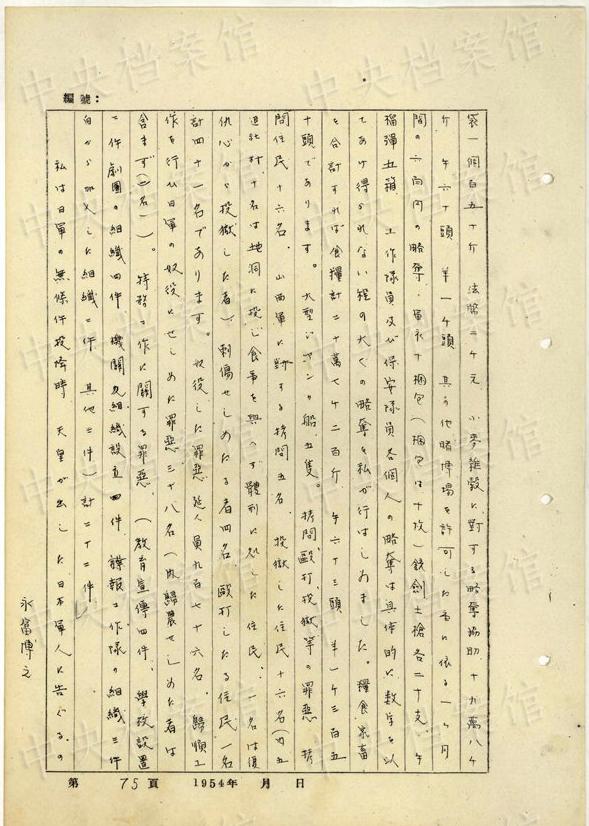 編號：
袋一個百五十斤 法幣二千元 小麥雑穀に對する略奪協助十九萬八千
斤 牛六十頭 羊一千頭 其の他賭博場を許可した事に依る一ヶ月
間の六百円の略奪、軍衣十梱包（梱包は十枚）銃劍土槍各二十支、手
榴彈五箱、工作隊員及び保安隊員各個人の略奪は具体的に数字を以
てあげ得られない程の大くの略奪を私が行はしめました。糧食家畜
を合計すれば食糧計二十萬七千二百斤、牛六十三頭 羊一千三百五
十頭であります。大型ジャンク船五隻。拷問毆打投獄等の罪惡 拷
問住民十六名、山西軍に對する拷問五名、投獄した住民十六名（内五
名は地洞に投じ食事を與へず體刑に処した住民、一名は復
仇心から投獄した者）刺傷せしめたる者四名、毆打したる住民一名
計四十一名であります。奴役した罪惡 延人員九百七十六名、歸順工
作を行ひ日軍の奴役にせしめた罪惡三十八名（内歸農せしめた者は
含まず（二名））。特務工作に關する罪惡（教育宣傳四件、學校設置
二件 劇團の組織四件 機關及組織設立四件 諜報工作隊の組織三件
自から加入した組織二件 其他三件）計二十二件、
私は日軍の無條件投降時 天皇が出した日本軍人に告ぐるの
永富博之
第 75 頁 1954年 月 日
中央档案馆